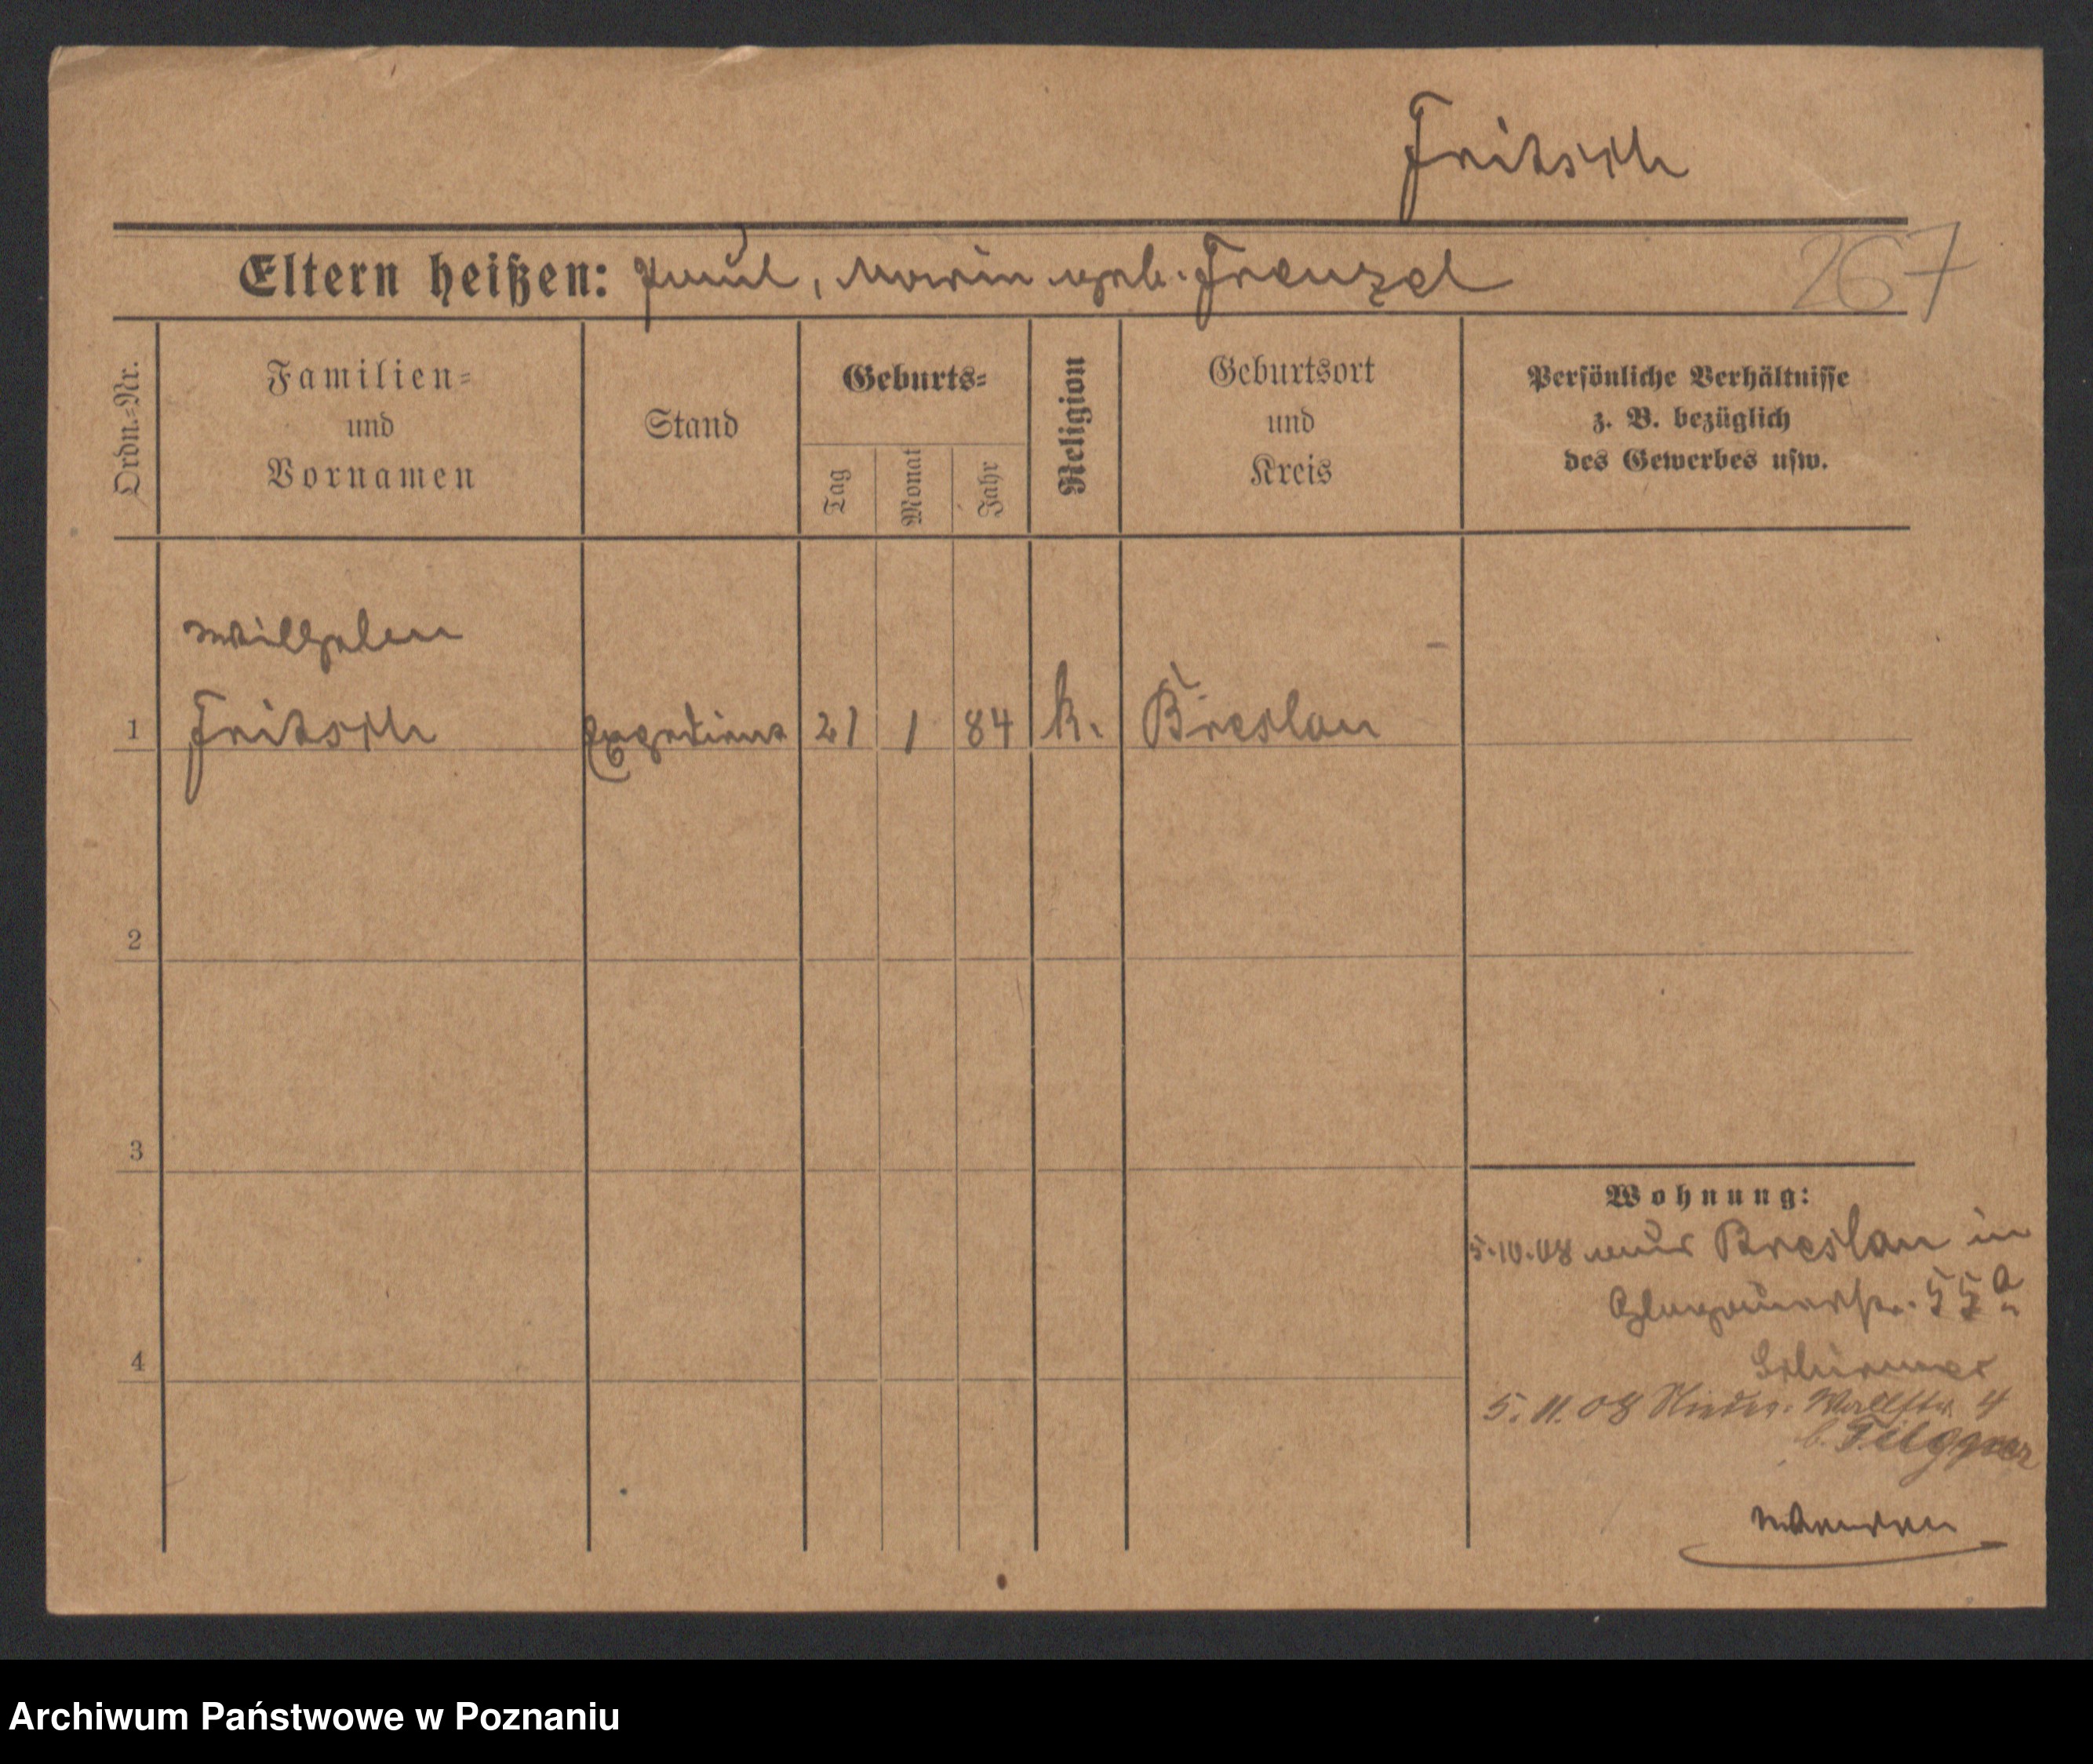 Fritsch
267
Eltern heißen: Paul, Maria geb. Frenzel
Ordn.=Nr.
Familien=
und
Vornamen
Stand
Geburts=
Tag
Monat
Jahr
Religion
Geburtsort
und
Kreis
Persönliche Verhältnisse
z. B. bezüglich
des Gewerbes usw.
Wilhelm
1 Fritsch Expedient 21 1 84 k. Breslau
2
3
4
Wohnung:
5.10.08 aus Breslau in
Glogauerstr. 55a
5.11.08 Wallstr. 4
b.
Archiwum Państwowe w Poznaniu